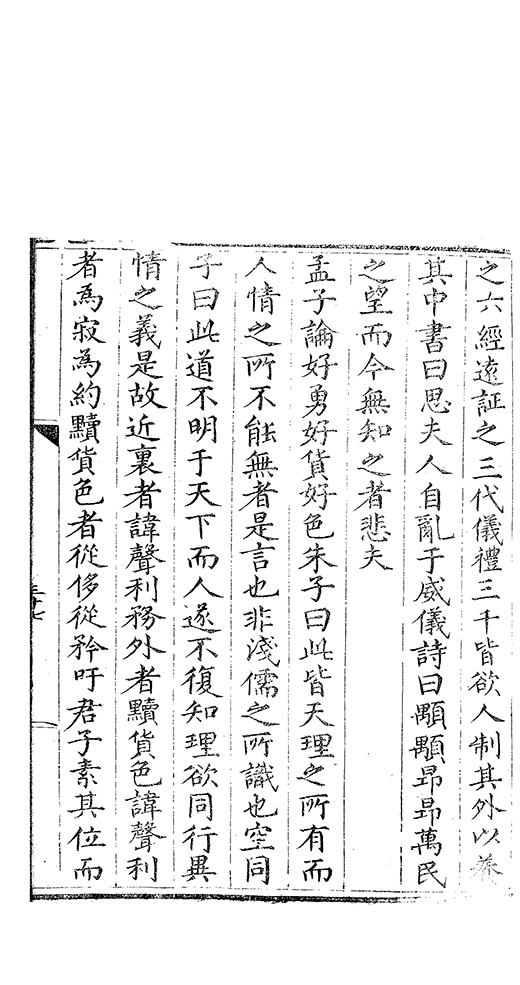 之六經遠証之三代儀禮三千皆欲人制其外以養
其中書曰思夫人自亂于威儀詩曰顒顒昂昂萬民
之望而今無知之者悲夫
孟子論好勇好貨好色朱子曰此皆天理之所有而
人情之所不能無者是言也非淺儒之所識也空同
子曰此道不明于天下而人遂不復知理欲同行異
情之義是故近裏者諱聲利務外者黷貨色諱聲利
者為寂為約黷貨色者從侈從矜吁君子素其位而
三十七